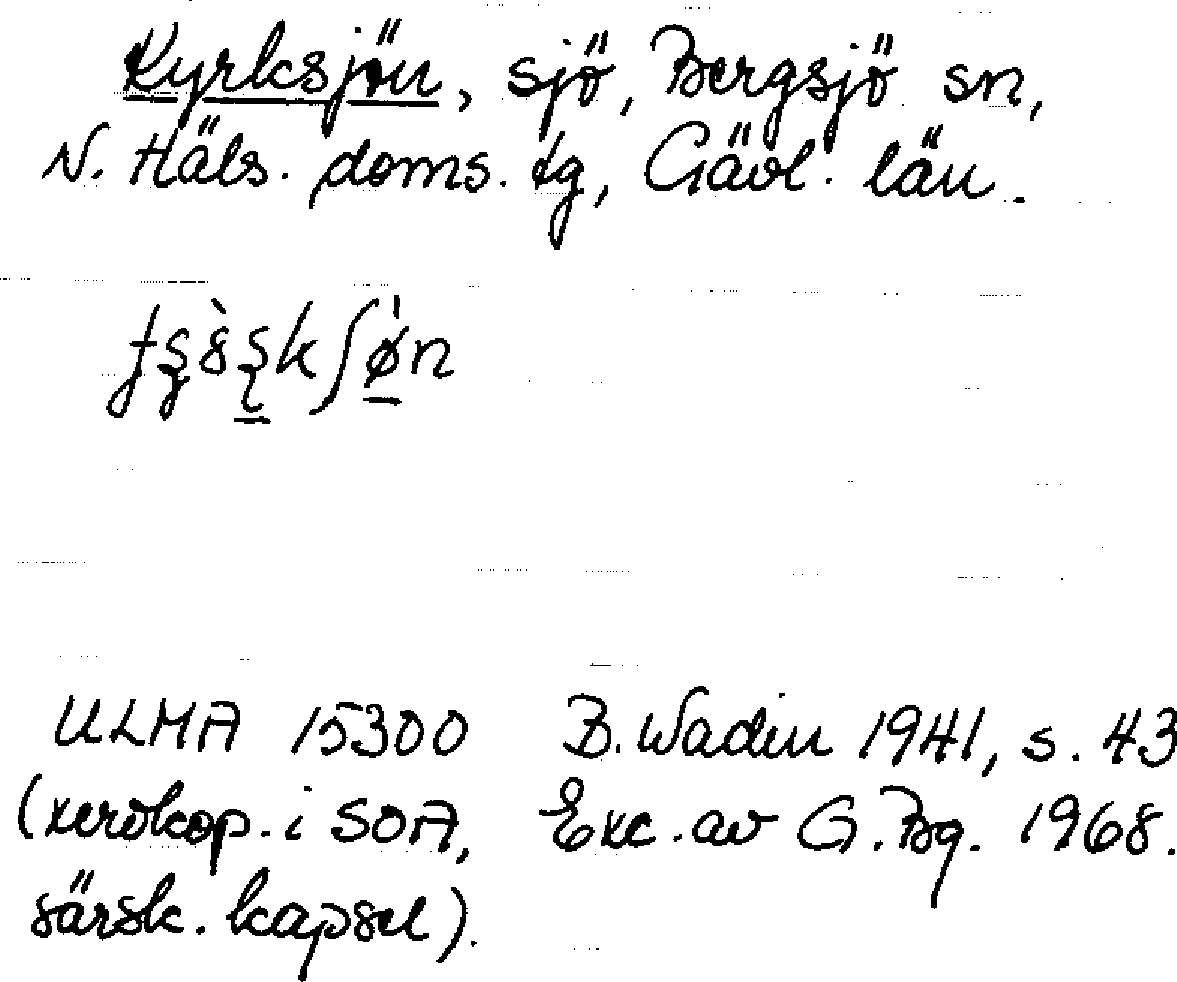 Kyrksjön, sjö, Bergsjö sn,
N. Häls. doms. tg, Gävl. län.
ULMA 15300 B. Wadin 1941, s. 43
(xerokop. i SOA, Exc. av G. Bg. 1968.
särsk. kapsel).